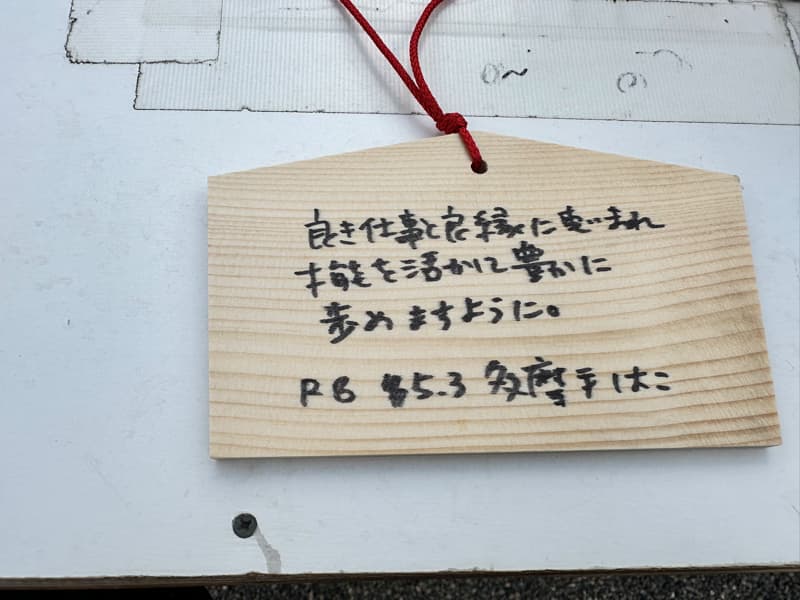 良き仕事と良縁に恵まれ
才能を活かして豊かに
歩めますように。
R8 5.3 多摩手はこ